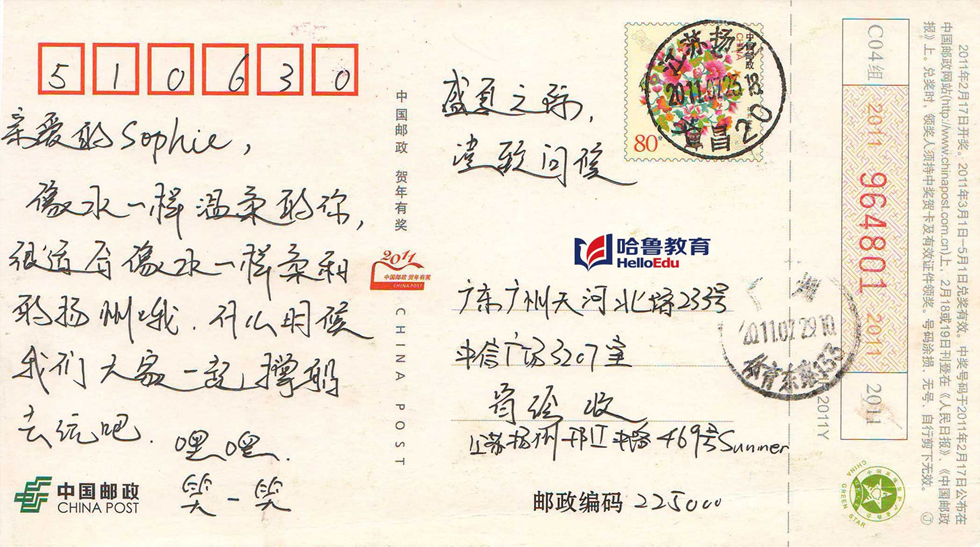 510630
亲爱的Sophie，
像水一样温柔的你，
很适合像水一样柔和
的扬州哦．什么时候
我们大家一起撑船
去玩吧．
嘿嘿．
笑一笑
中国邮政
CHINA POST
中国邮政 贺年有奖
2011
中国邮政 贺年有奖
CHINA POST
CHINA POST
盛夏之际，
遥致问候
中国邮政
CHINA
80分
江苏扬州
2011.07.25.18
20
哈鲁教育
HelloEdu
广东广州天河北路233号
中信广场3207室
收
江苏扬州邗江中路469号Summer
邮政编码 225000
2011.07.29.10
体育东路153
2011Y
C04组
2011
964801
2011
2011
CHINA
GREEN STAR
2011年2月17日开奖。2011年3月1日—5月1日兑奖有效。中奖号码于2011年2月17日公布在
中国邮政网站(http://www.chinapost.com.cn)上，2月18或19日刊登在《人民日报》、《中国邮政
报》上。兑奖时，领奖人须持中奖贺卡及有效证件领奖。号码涂损，无号，自行剪下无效。